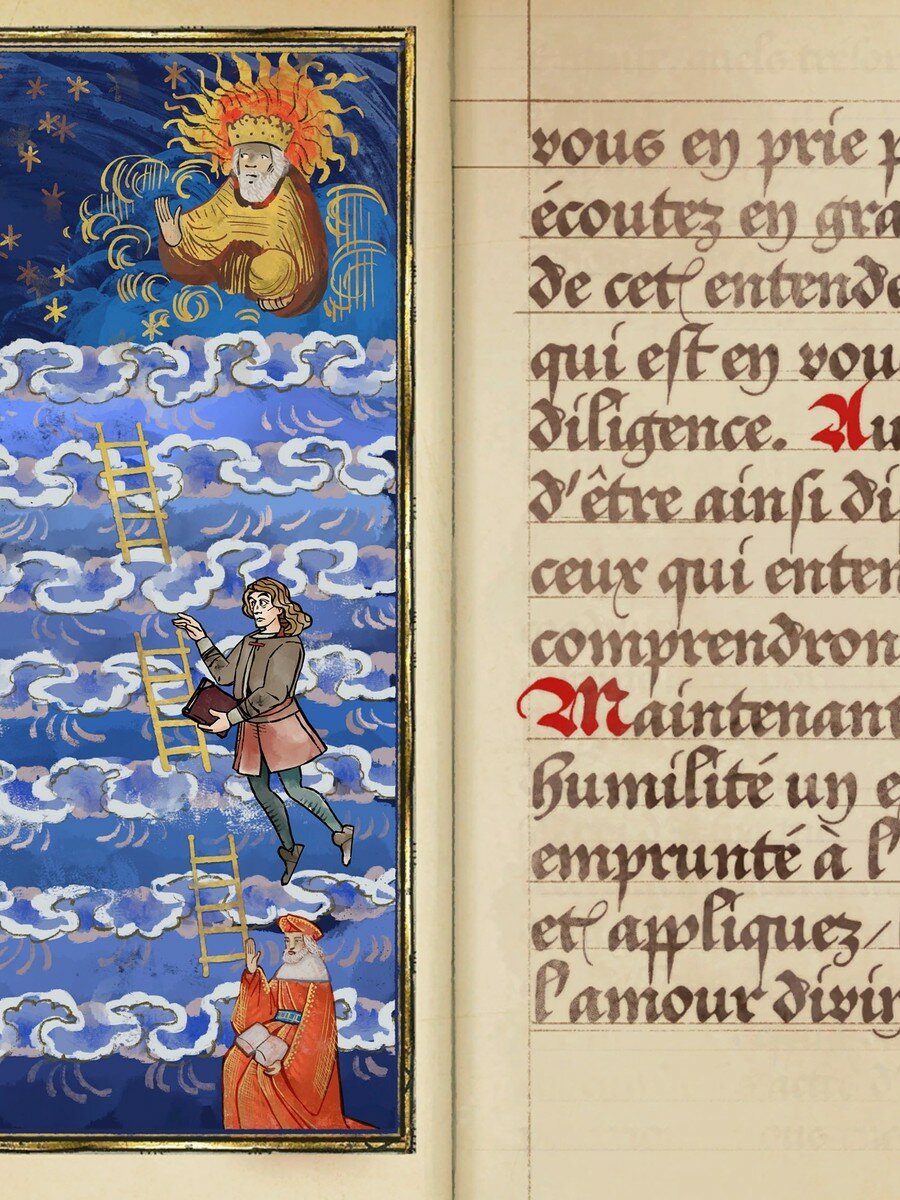 vous en prie p
écoutez en gra
de cet entende
qui est en vou
diligence. Au
d'être ainsi di
ceux qui enten
comprendron
Maintenant
humilité un e
emprunté à l'
et appliquez/
l'amour divin